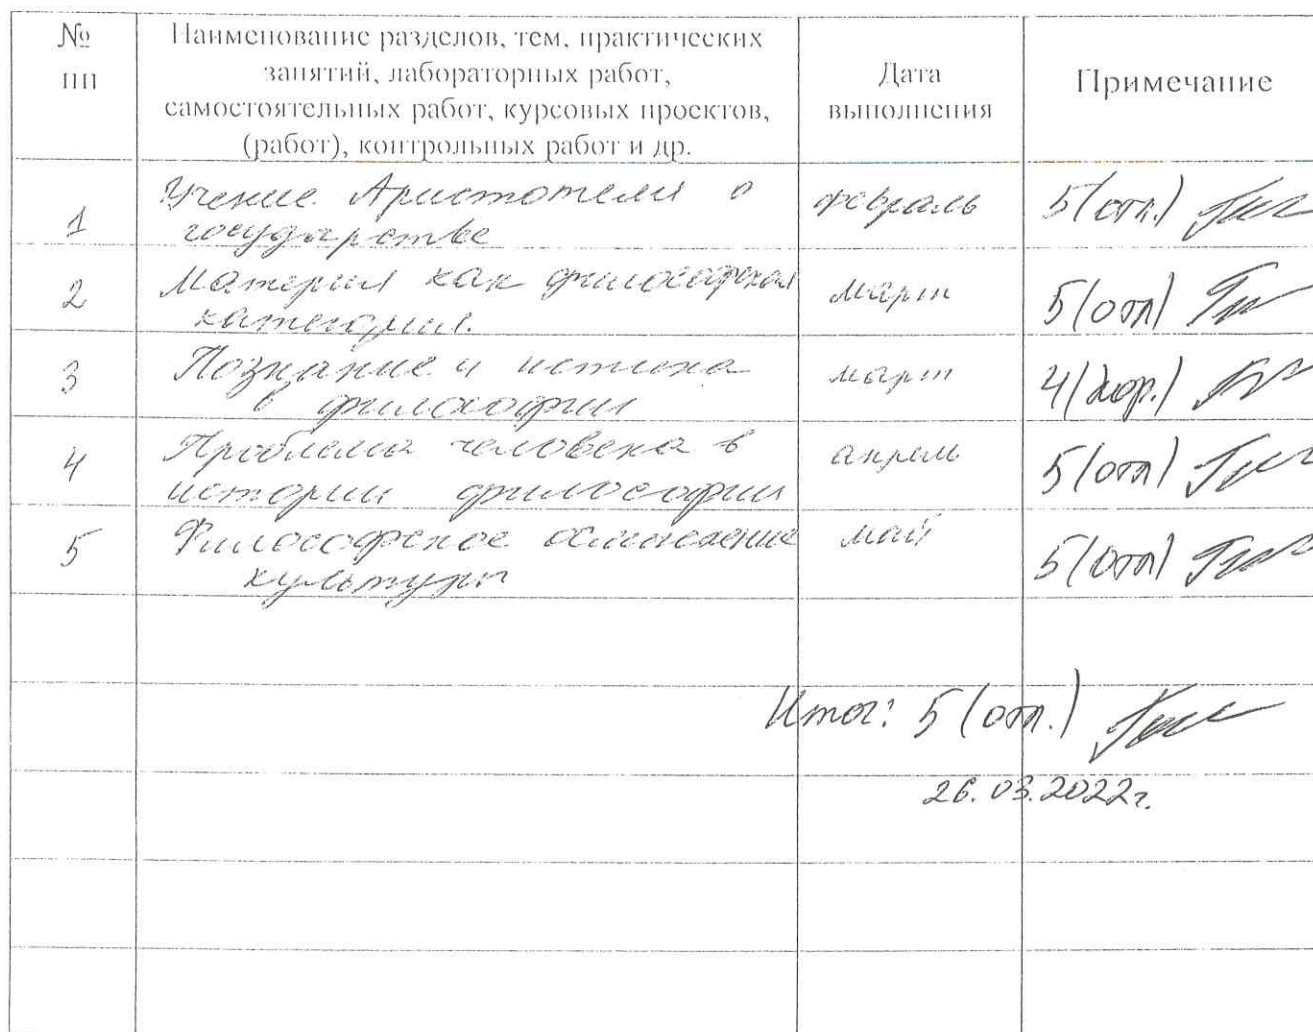 №
пп
Наименование разделов, тем, практических
занятий, лабораторных работ,
самостоятельных работ, курсовых проектов,
(работ), контрольных работ и др.
Дата
выполнения
Примечание
1
Учение Аристотеля о
государстве
февраль
5(отл.)
2
Материя как философская
категория.
март
5(отл)
3
Познание и истина
в философии
март
4(хор.)
4
Проблема человека в
истории философии
апрель
5(отл)
5
Философское осмысление
культуры
май
5(отл)
Итог: 5 (отл.)
26.03.2022г.